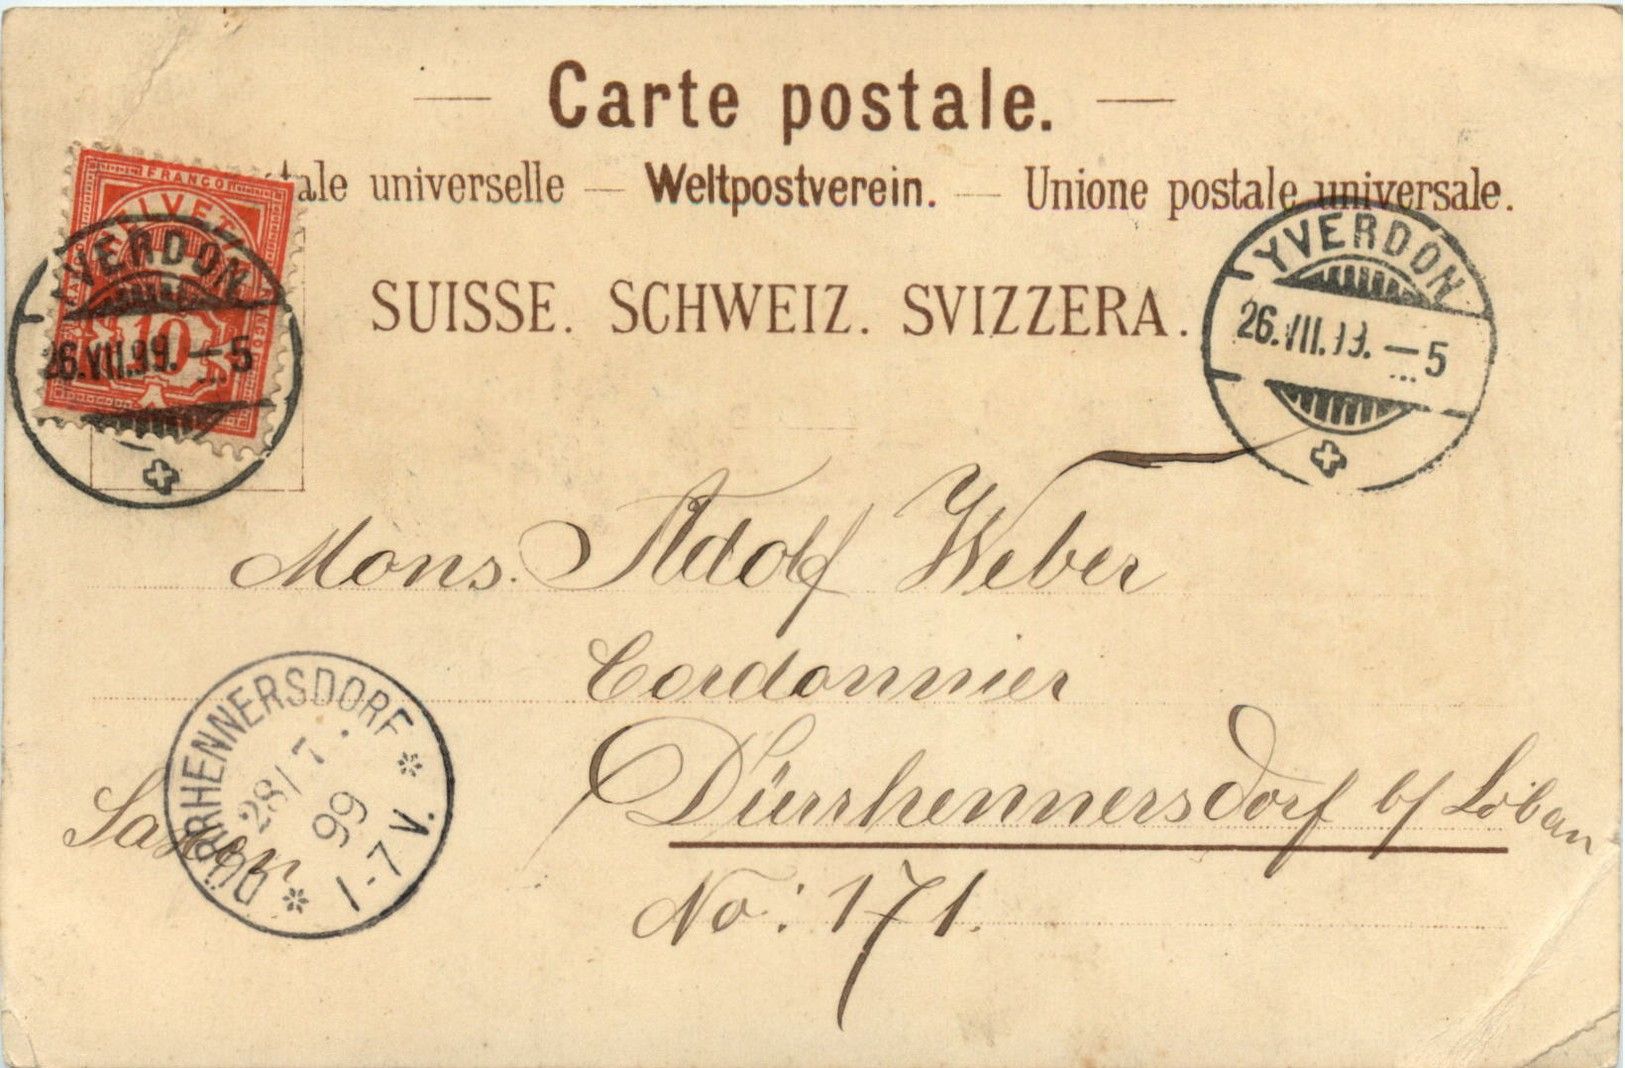 Carte postale.
tale universelle — Weltpostverein. — Unione postale universale.
SUISSE. SCHWEIZ. SVIZZERA.
FRANCO
HELVET
10
YVERDON
26.VII.99.—5
YVERDON
26.VII.99.—5
Mons. Adolf Weber
Cordonnier
Dürrhennersdorf b/ Löbau
Saxen
No: 171.
DÜRRHENNERSDORF
28/7.
99
1-7V.